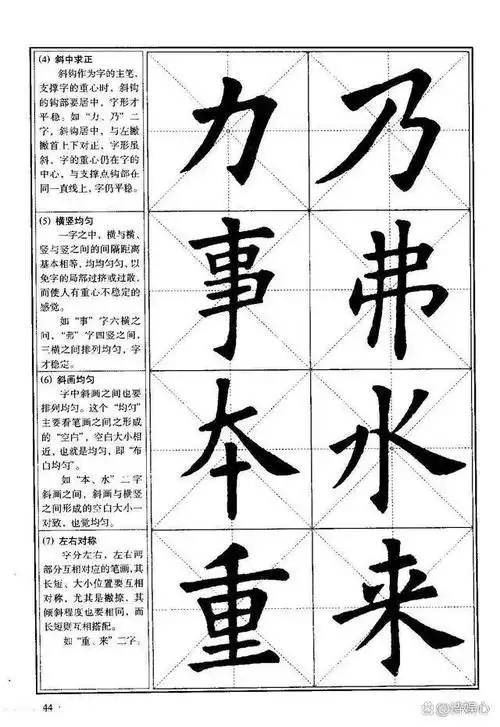 (4) 斜中求正
斜钩作为字的主笔、
支撑字的重心时，斜钩
的钩部要居中，字形才
平稳。如“力、乃”二
字，斜钩居中，与左撇
撇首上下对正，字形虽
斜，字的重心仍在字的
中心，与支撑点钩部在
同一直线上，字仍平稳。
力 乃
(5) 横竖均匀
一字之中，横与横、
竖与竖之间的间隔距离
基本相等，均均匀匀，以
免字的局部过挤或过散，
而使人有重心不稳定的
感觉。
如“事”字六横之
间，“弗”字四竖之间，
三横之间排列均匀，字
才稳定。
事 弗
(6) 斜画均匀
字中斜画之间也要
排列均匀。这个“均匀”
主要看笔画之间之形成
的“空白”，空白大小相
近，也就是均匀，即“布
白均匀”。
如“本、水”二字
斜画之间，斜画与横竖
之间形成的空白大小一
对致，也觉均匀。
本 水
(7) 左右对称
字分左右，左右两
部分互相对应的笔画，其
长短、大小位置要互相
对称，尤其是撇捺，其
倾斜程度也要相同，而
长短则互相搭配。
如“重、来”二字。
重 来
44